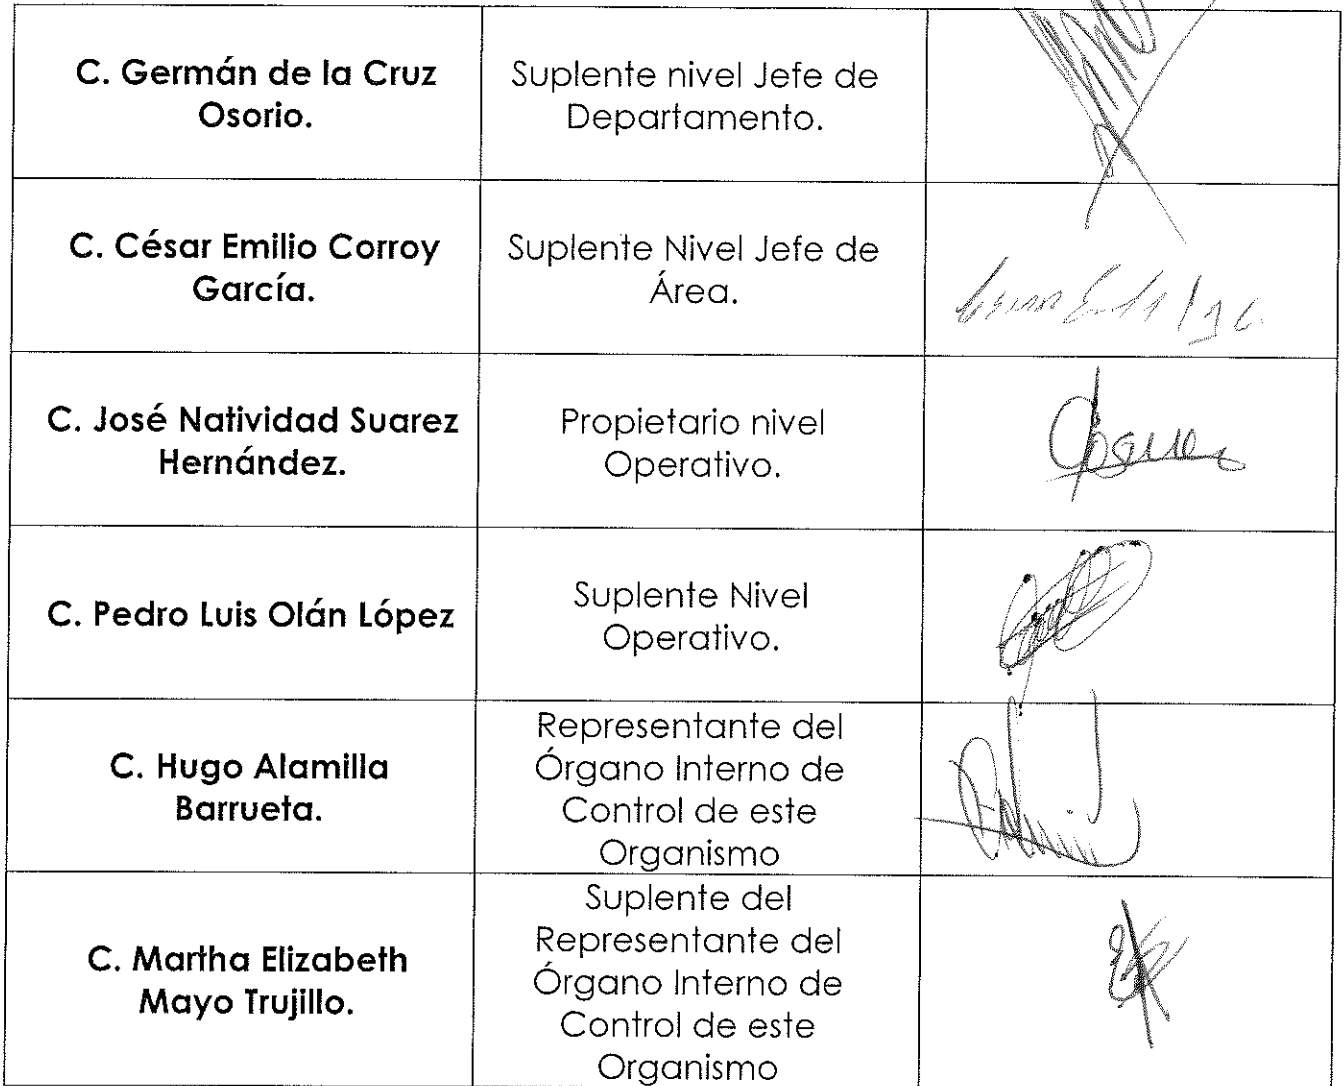 C. Germán de la Cruz
Osorio.
Suplente nivel Jefe de
Departamento.
C. César Emilio Corroy
García.
Suplente Nivel Jefe de
Área.
C. José Natividad Suarez
Hernández.
Propietario nivel
Operativo.
C. Pedro Luis Olán López
Suplente Nivel
Operativo.
C. Hugo Alamilla
Barrueta.
Representante del
Órgano Interno de
Control de este
Organismo
C. Martha Elizabeth
Mayo Trujillo.
Suplente del
Representante del
Órgano Interno de
Control de este
Organismo